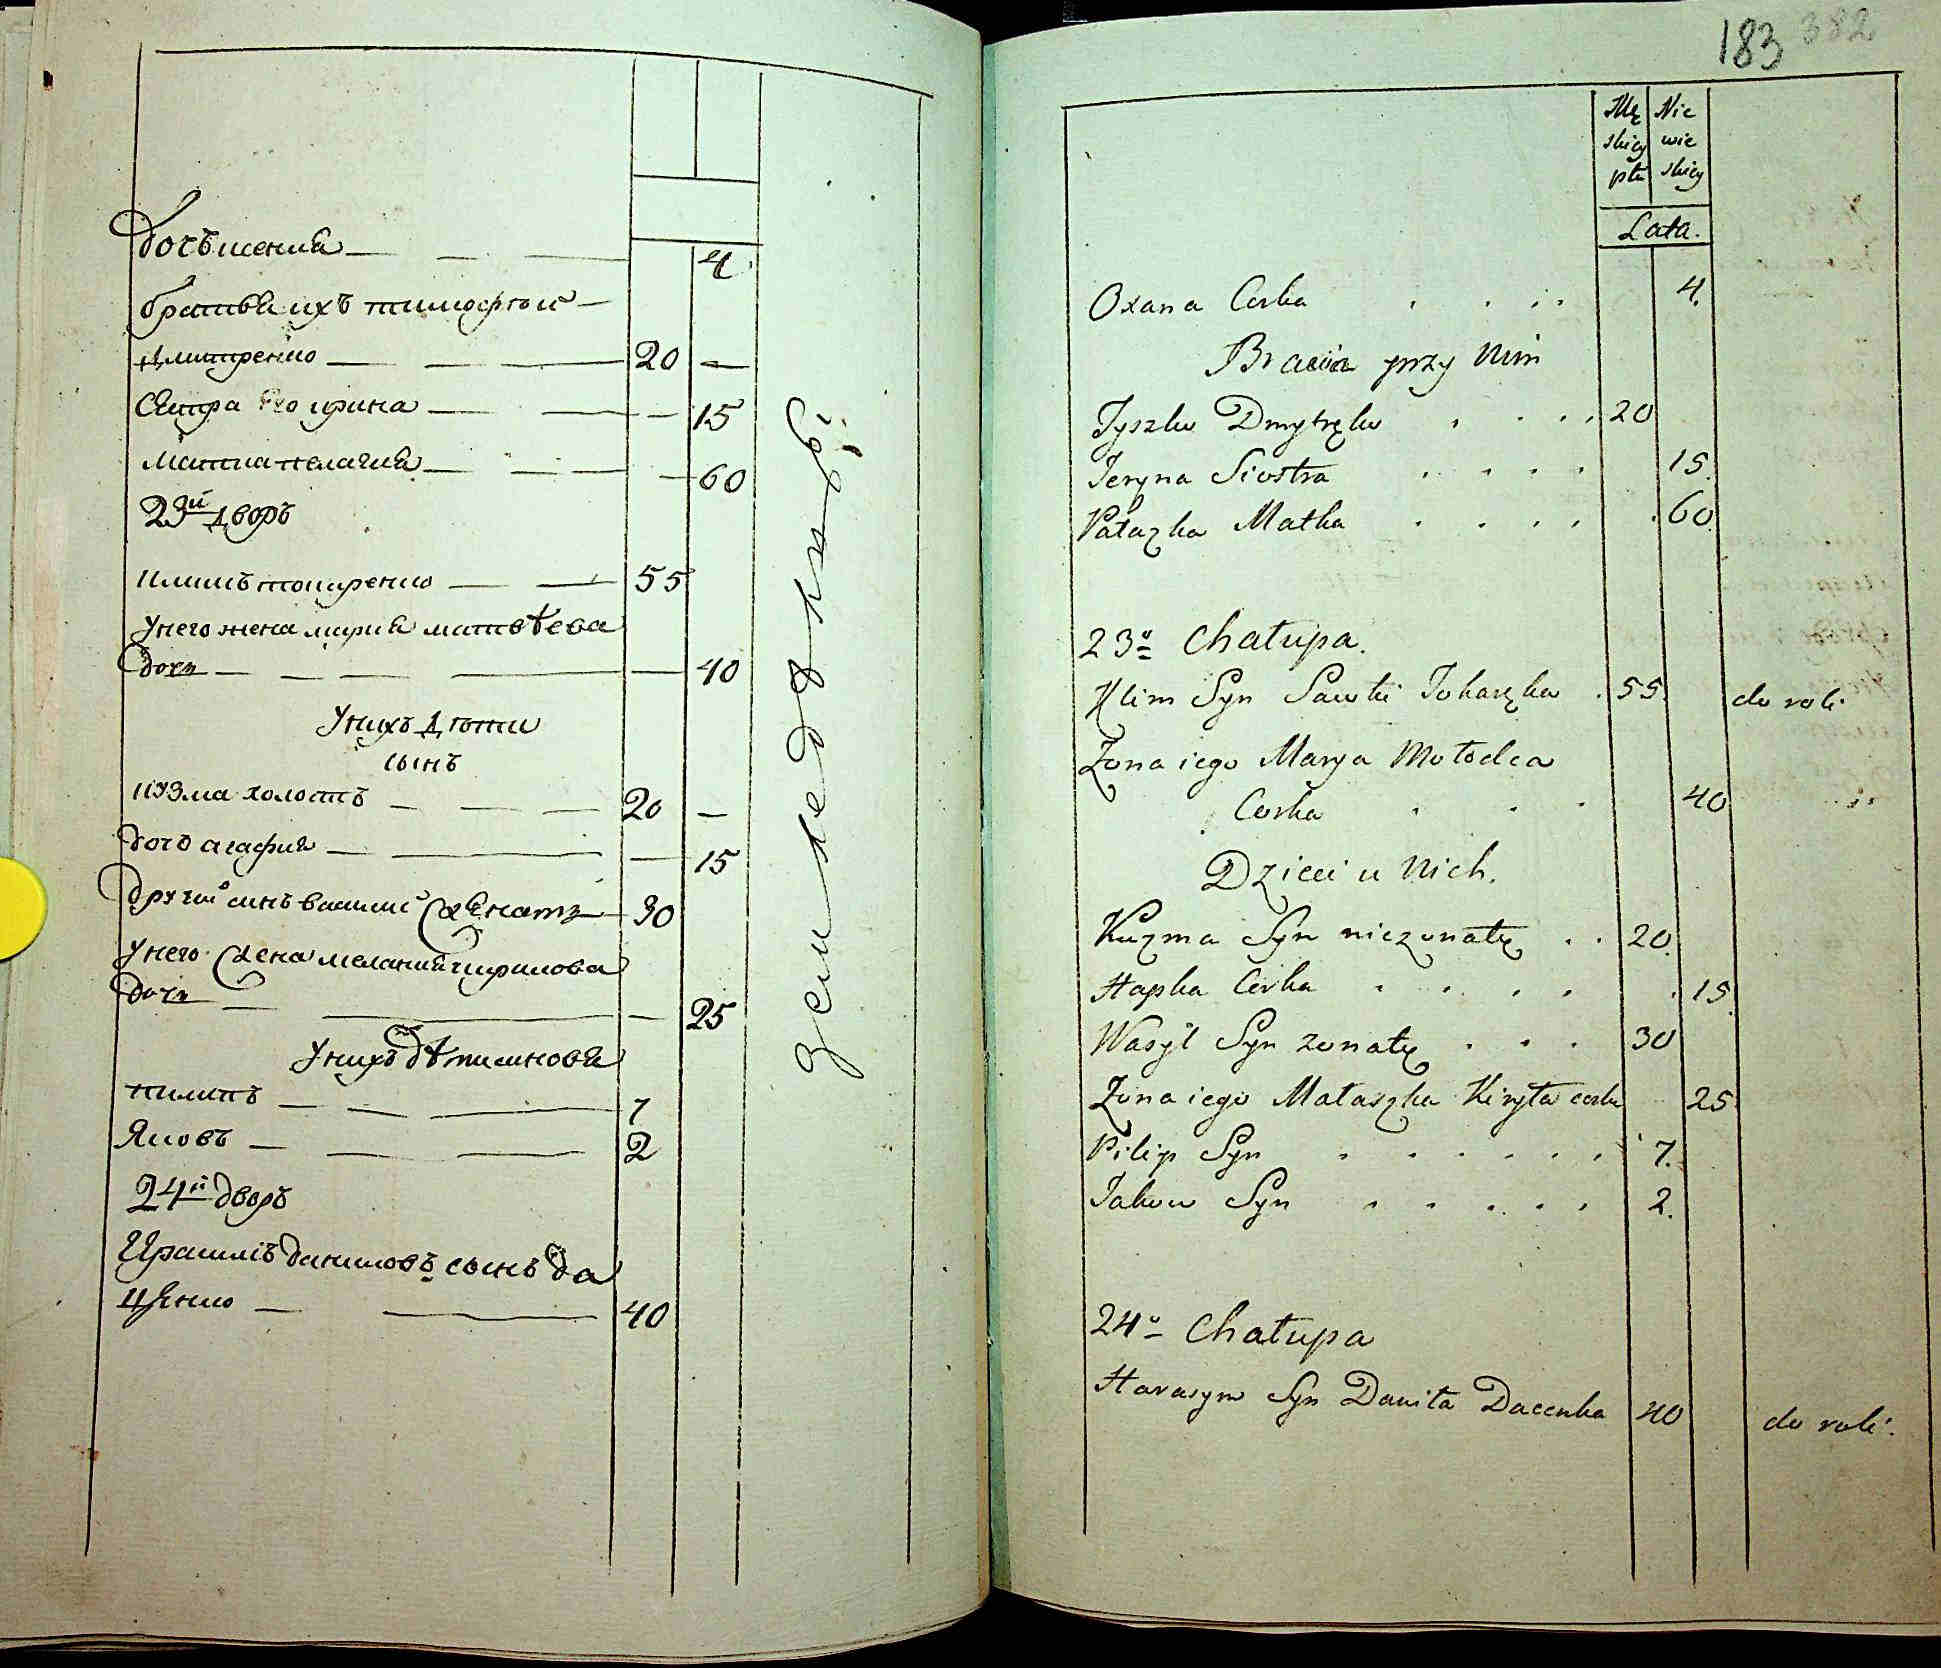 дочь ксения 4
братья ихъ тимофей
дмитренко 20
сестра его ирина 15
матка пелагия 60
23й дворъ
климъ токаренко 55
у него жена мария матвѣева
дочь 40
у нихъ дѣти
сынъ
кузма холостъ 20
дочь агафия 15
другой синъ василий женатъ 30
у него жена мелания чирилова
дочь 25
у нихъ дѣти синовья
пилипъ 7
Яковъ 2
24й дворъ
Ирасимъ даниловъ сынъ да
ценко 40
земледѣлцы
183 382
Mę Nie
skiey wie
płci skiey
Lata.
Oxana Corka 4.
Bracia przy nim
Tyszko Dmytręko 20
Jeryna Siostra 15.
Pałazka Matka 60.
23o Chałupa.
Klim Syn Sawki Tokaręka 55. do roli.
Zona iego Marya Mołodca
Corka 40
Dzieci u nich.
Kuzma Syn niezonatę 20.
Hapka Corka 15
Wasyl Syn zonatę 30
Zona iego Małaszka Kiryła corka 25.
Pilip Syn 7.
Jakow Syn 2.
24o Chałupa
Harasym Syn Daniła Dacenka 40 do roli.